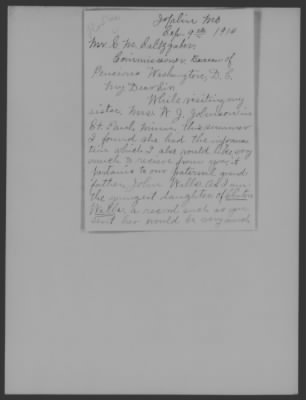 Joplin Mo
Sep. 9th 1914
Mr. G. M. Saltzgaber,
Commissioner, Bureau of
Pensions Washington, D. C.
My Dear Sir
While visiting my
sister, Mrs. W. J. Johnson in
St. Paul, Minn, this summer
I found she had the informa
tion which I also would like very
much to recieve from you, it
pertains to our paternal grand
father, John Walls. As I am
the youngest daughter of
Walls a record such as you
sent her would be very much